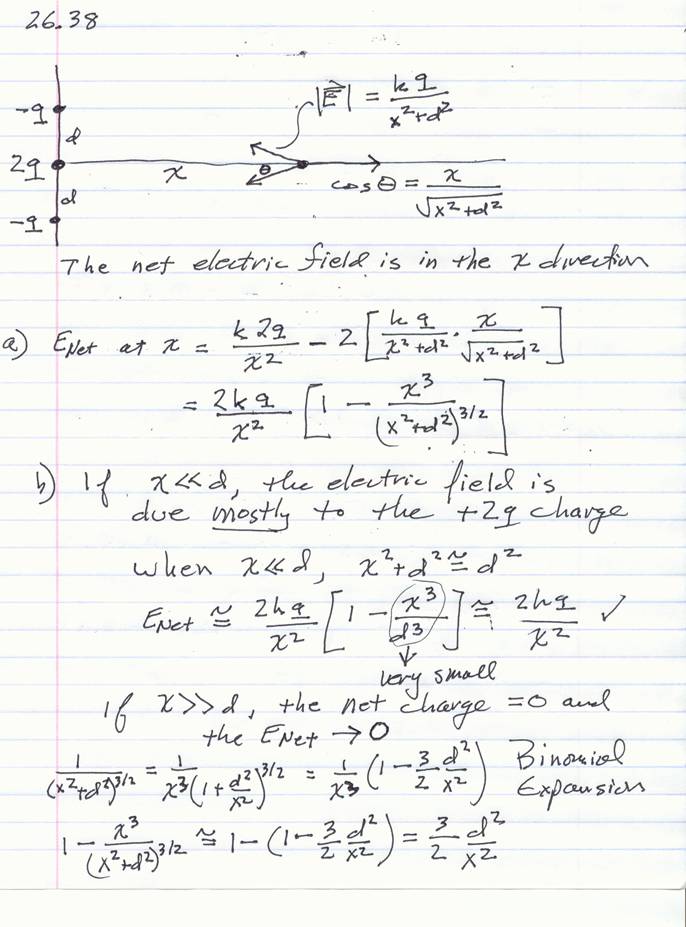 26.38
-q
d
2q
d
-q
x
θ
|E⃗| = kq/(x²+d²)
cos θ = x/√(x²+d²)
The net electric field is in the x direction
a) E_Net at x = k2q/x² - 2[kq/(x²+d²) · x/√(x²+d²)]
= 2kq/x² [1 - x³/(x²+d²)^3/2]
b) If x<<d, the electric field is
due mostly to the +2q charge
when x<<d, x²+d² ≅ d²
E_Net ≅ 2kq/x² [1 - x³/d³] ≅ 2kq/x² ✓
↓
very small
If x>>d, the net charge =0 and
the E_Net → 0
1/(x²+d²)^3/2 = 1/(x³(1+d²/x²)^3/2) = 1/x³ (1 - 3/2 d²/x²) Binomial
Expansion
1 - x³/(x²+d²)^3/2 ≅ 1 - (1 - 3/2 d²/x²) = 3/2 d²/x²